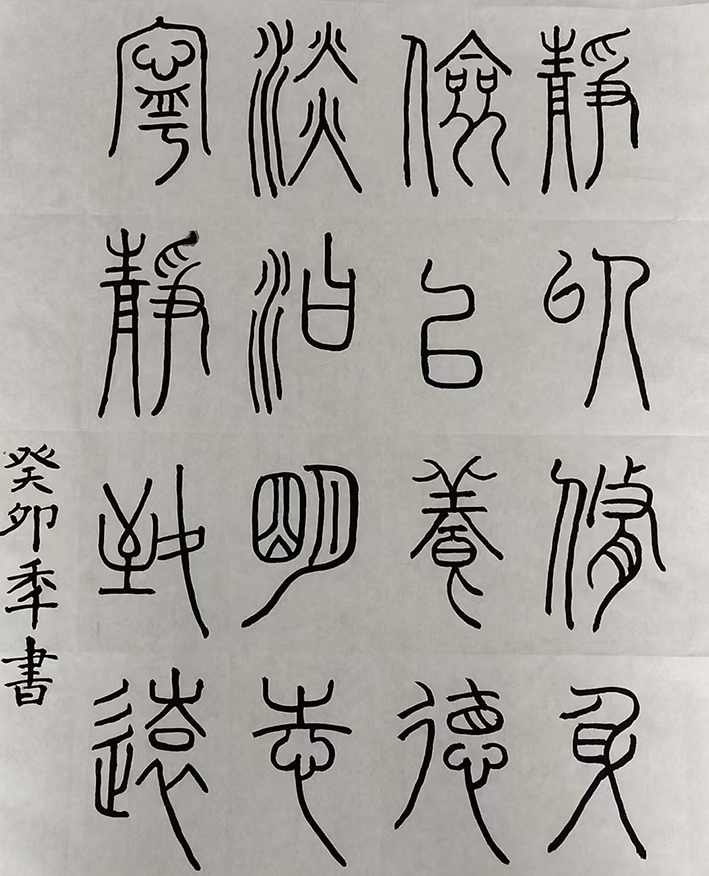 靜以脩身
儉以養德
淡泊明志
寧靜致遠
癸卯季書